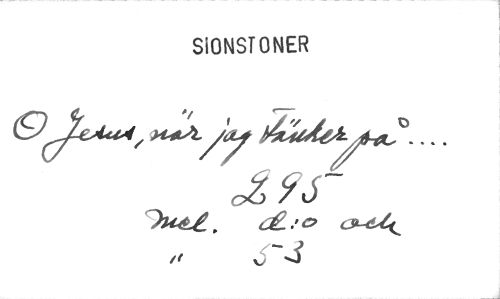 SIONSTONER
O Jesus, när jag tänker på....
295
Mel. d:o och
" 53